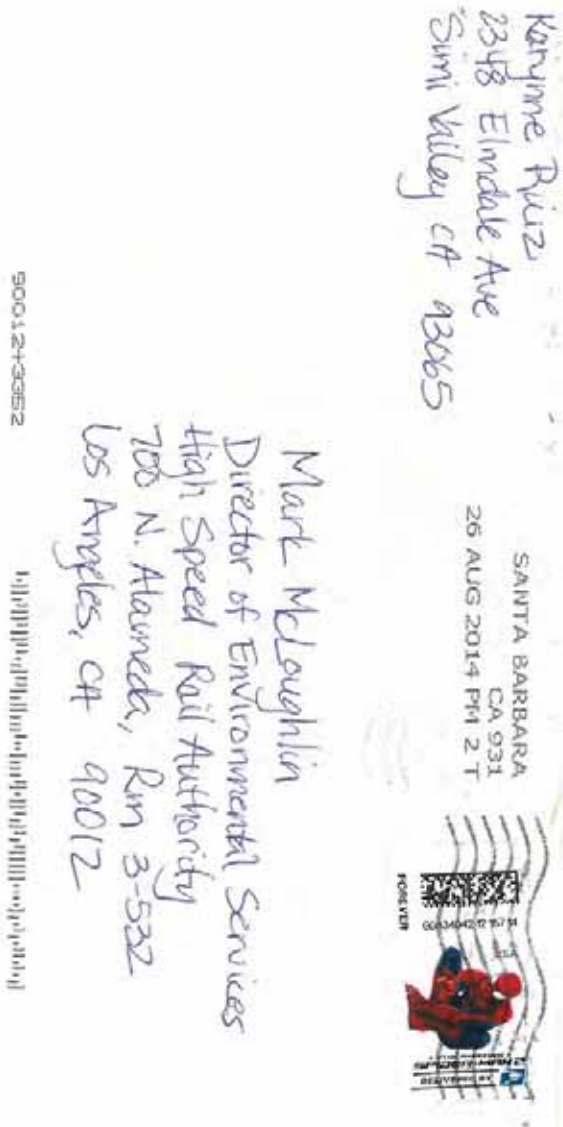 Karynne Ruiz
2348 Elmdale Ave
Simi Valley CA 93065
SANTA BARBARA
CA 931
26 AUG 2014 PM 2 T
FOREVER
USA
Mark McLoughlin
Director of Environmental Services
High Speed Rail Authority
700 N. Alameda, Rm 3-532
Los Angeles, CA 90012
90012+3352